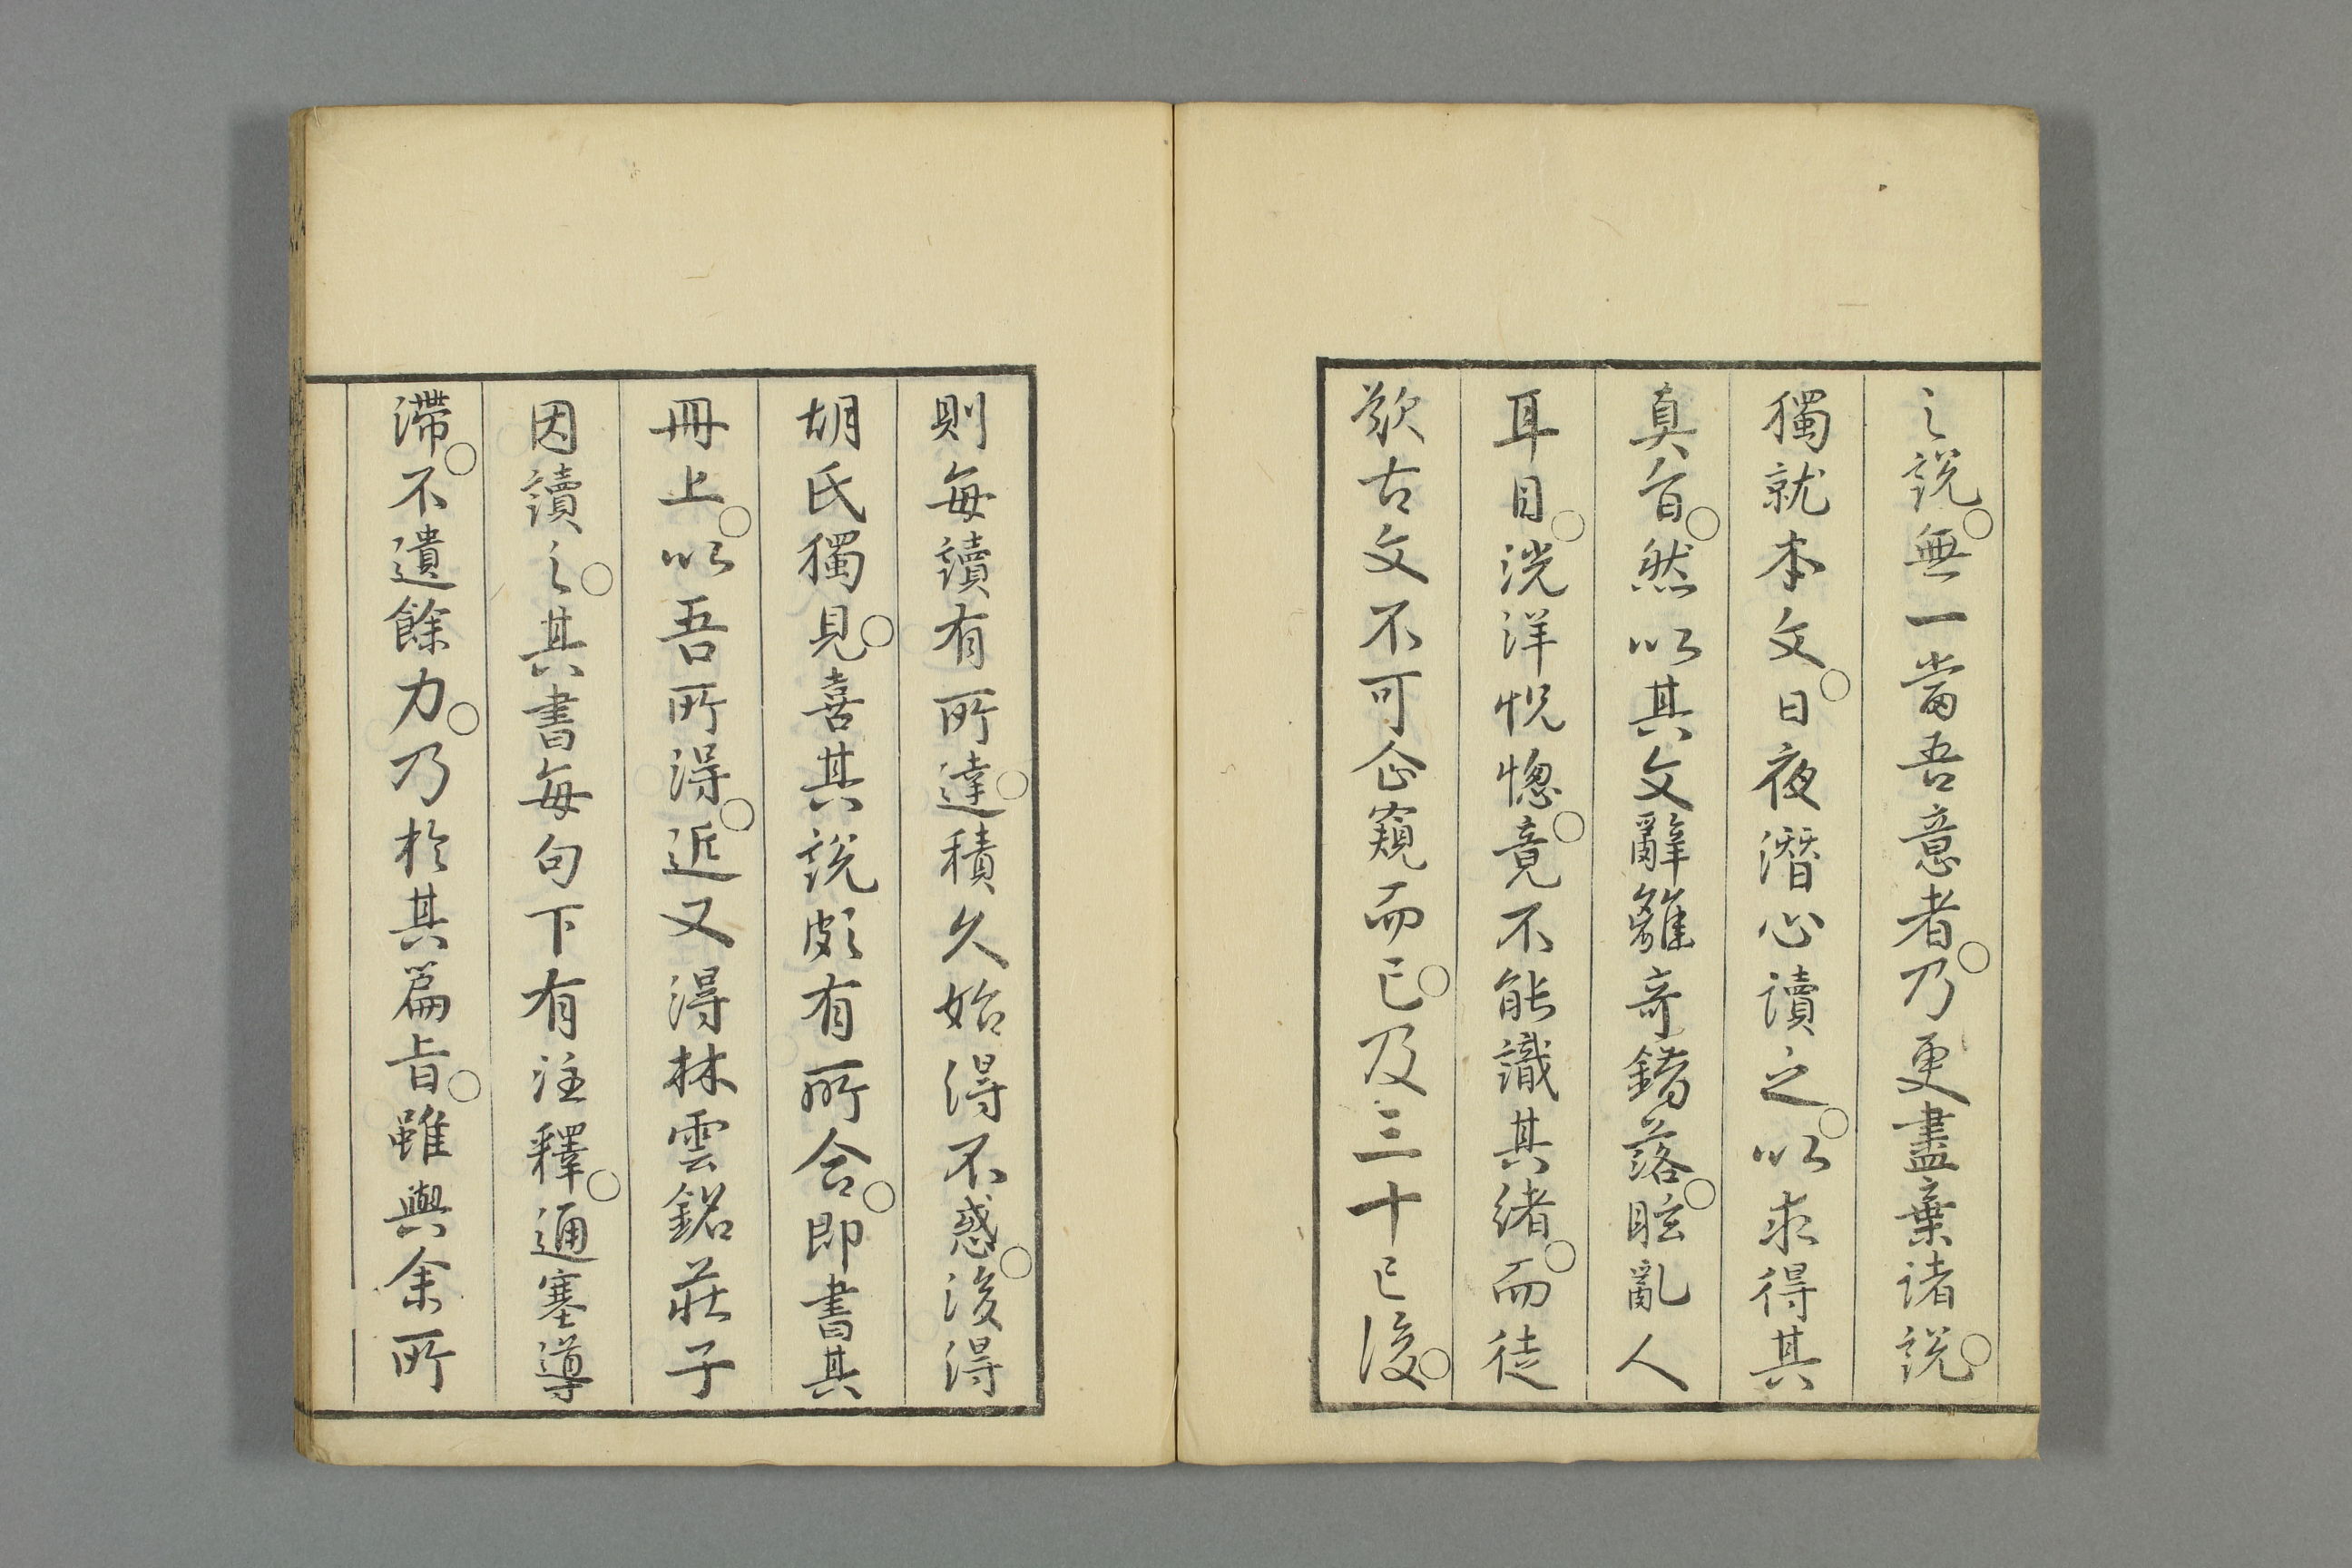 之說○無一當吾意者○乃更盡棄諸說○
獨就本文○日夜潛心讀之○以求得其
真旨○然以其文辭離奇錯落○眩亂人
耳目○洸洋怳惚○竟不能識其緒○而徒
歎古文不可企窺而已○及三十已後○
則每讀有所達○積久始得不惑○後得
胡氏獨見○喜其說頗有所合○即書其
冊上○以吾所得○近又得林雲銘莊子
因讀之○其書每句下有注釋○通塞導
滯○不遺餘力○乃於其篇旨○雖與余所